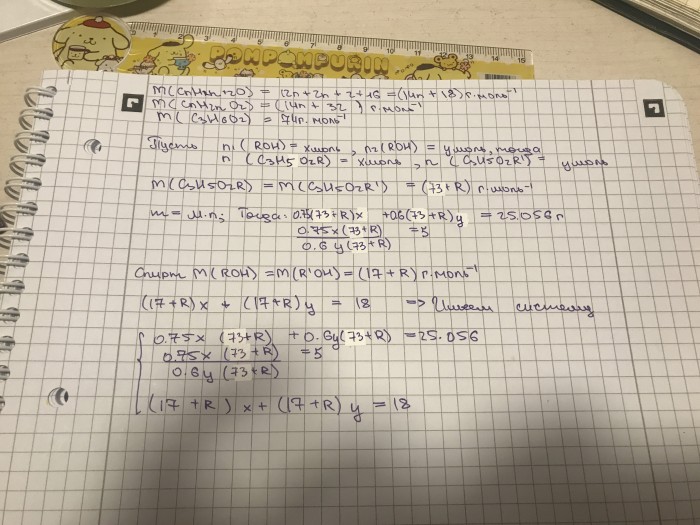 POMPOMPURIN
M(CnH2n+2O) = 12n+2n+2+16 =(14n+18) г·моль⁻¹
M(CnH2nO2) = (14n+32) г·моль⁻¹
M(C3H6O2) = 74г·моль⁻¹
Пусть n1(ROH)=xмоль, n2(ROH) = yмоль, тогда
n(C3H5O2R)=xмоль, n(C3H5O2R')= yмоль
M(C3H5O2R)=M(C3H5O2R') =(73+R) г·моль⁻¹
m=M·n; Тогда: 0.75(73+R)x +0.6(73+R)y = 25.056 г
0.75x(73+R)
0.6y(73+R) =5
Спирт M(ROH)=M(R'OH)=(17+R) г·моль⁻¹
(17+R)x + (17+R)y = 18 => Имеем систему
0.75x(73+R) +0.6y(73+R) =25.056
0.75x(73+R) =5
0.6y(73+R)
(17+R)x+(17+R)y =18